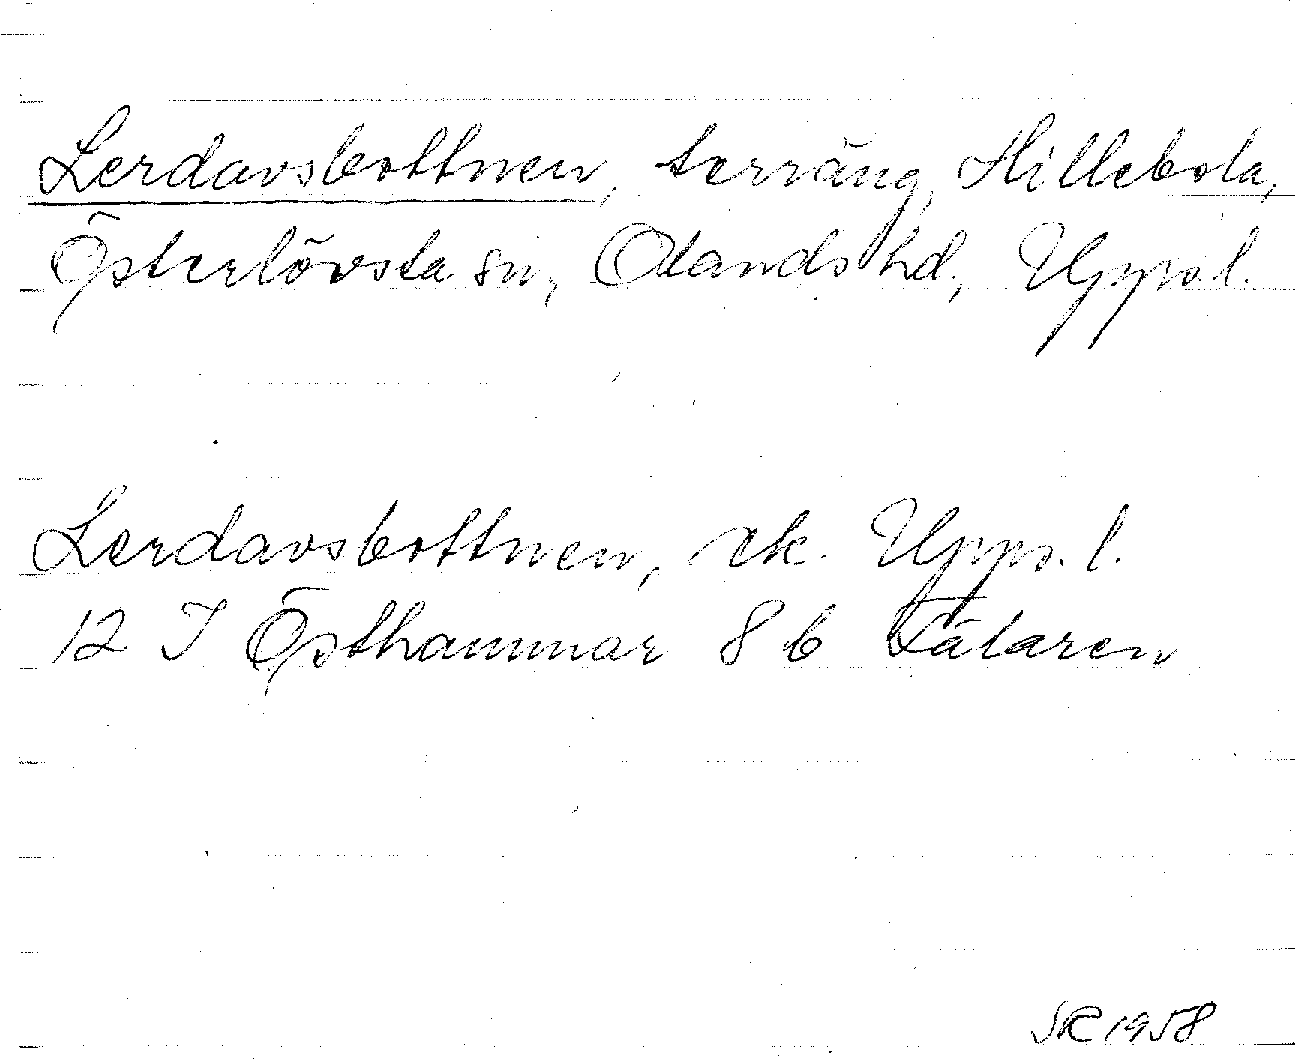 Lerdavsbottnen, terräng, Hillebola,
Österlövsta sn, Olands hd, Uppl.
Lerdavsbottnen, ek. Upps. l.
12 I Östhammar 8 b Fälaren
SR 1958